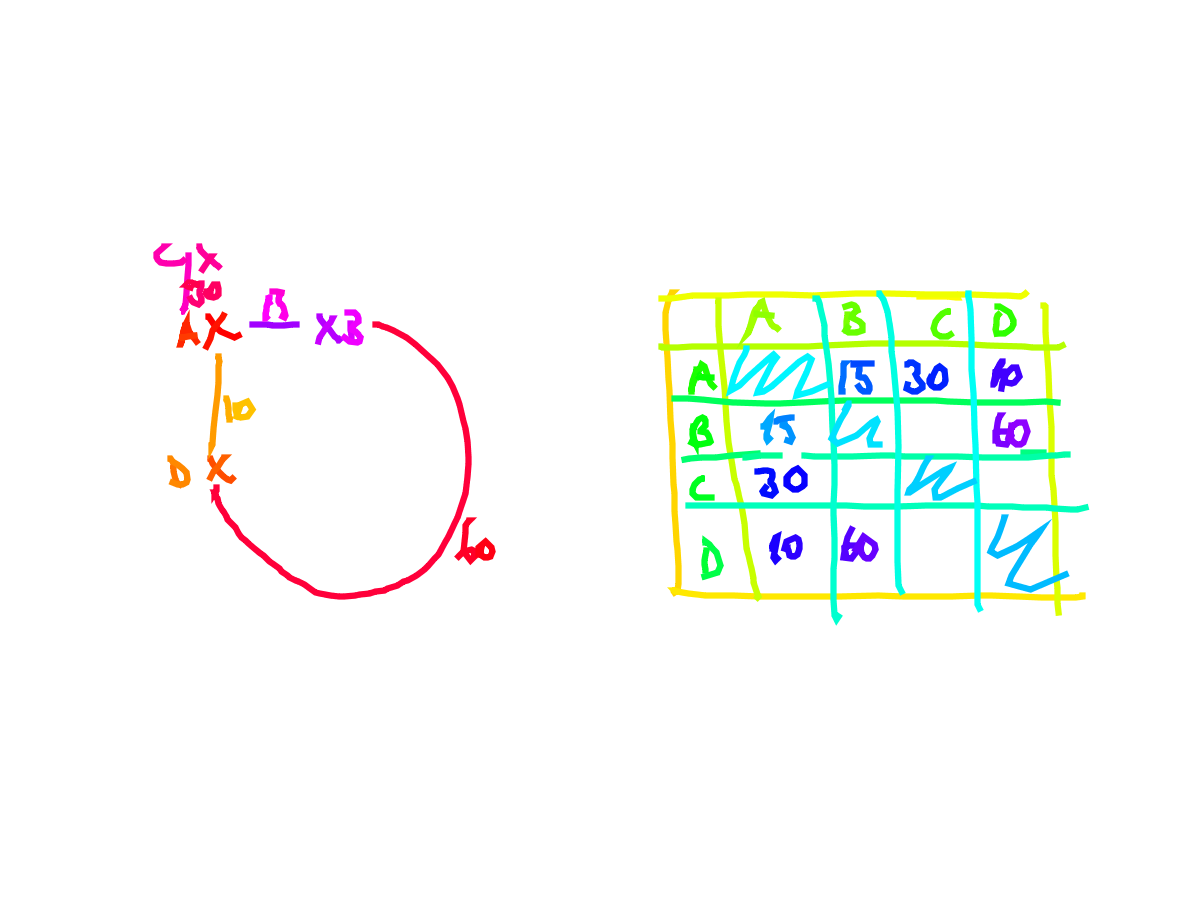 C x
30
A X
15
X B
10
D X
60
A B C D
A 15 30 10
B 15 60
C 30
D 10 60